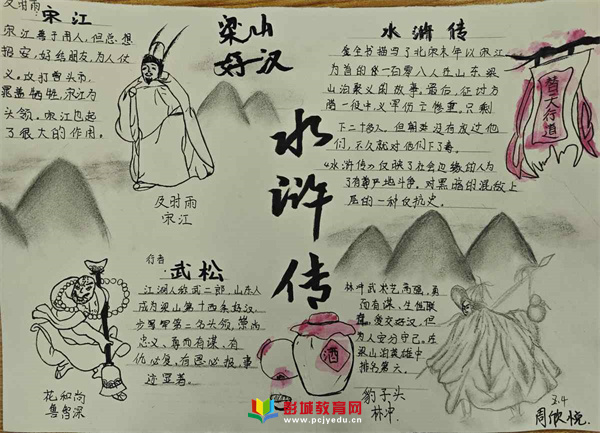 及时雨
宋江
宋江善于用人,但总想
招安,好结朋友,为人仗
义。攻打曾头市,
晁盖牺牲,宋江为
头领。宋江也起
了很大的作用。
及时雨
宋江
梁山
好汉
水浒传
水浒传
全书描写了北宋末年以宋江
为首的一百零八人在山东梁
山泊聚义的故事。最后,征讨方
腊一役中,义军伤亡惨重,只剩
下二十多人,但朝廷没有放过他
们,不久就对他们下了毒。
《水浒传》反映了社会边缘的人与
了有尊严地斗争。对黑暗的混
层的一种反抗史。
替天行道
行者
武松
江湖人称武二郎,山东人
成为梁山第十四条好汉,
步军第二名头领,崇尚
忠义,有勇有谋,有
仇必复,有恩必报,事
迹显著。
花和尚
鲁智深
酒
林冲武术艺高强,勇
而有谋、生性耿
爱交好汉,但
为人安分守己,在
梁山泊英雄中
排名第六。
豹子头
林冲
3.4
周欣悦
彭城教育网
www.pcjyedu.cn